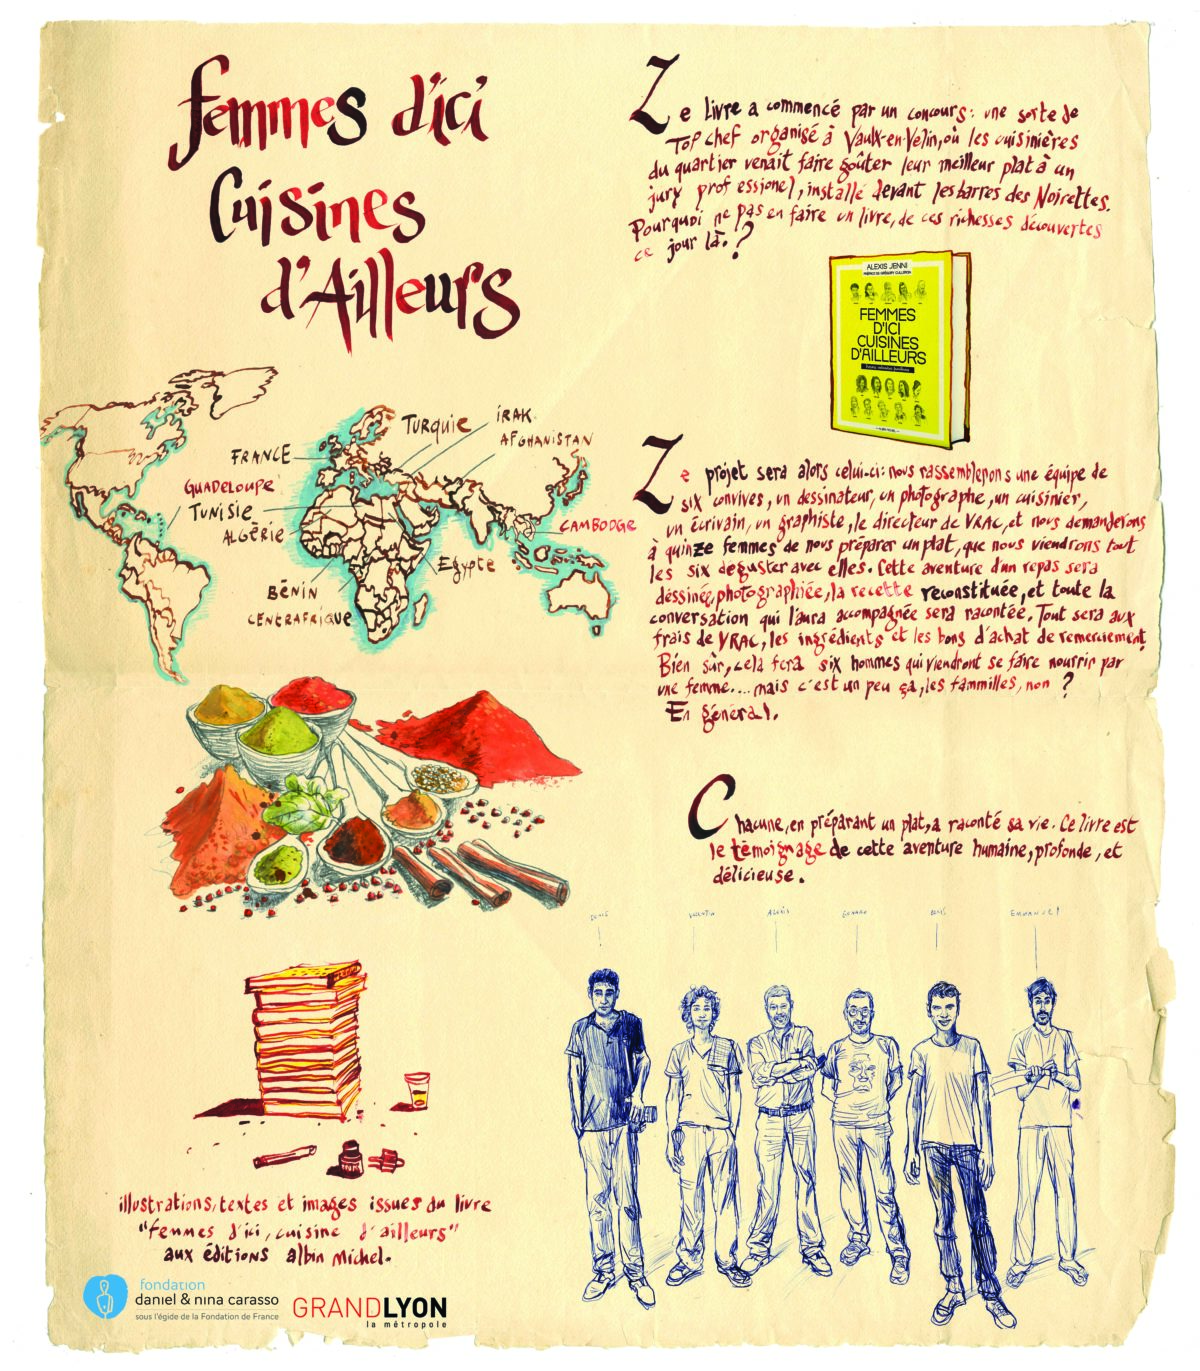 femmes d'ici
Cuisines
d'Ailleurs
Le livre a commencé par un concours: une sorte de
Top chef organisé à Vaulx-en-Velin, où les cuisinières
du quartier venait faire goûter leur meilleur plat à un
jury prof essionel, installé devant les barres des Noirettes.
Pourquoi ne pas en faire un livre, de ces richesses découvertes
ce jour là.?
ALEXIS JENNI
PRÉFACE DE GRÉGORY CUILLERON
FEMMES
D'ICI
CUISINES
D'AILLEURS
FRANCE
TURQUIE
IRAK
AFGHANISTAN
GUADELOUPE
TUNISIE
ALGÉRIE
CAMBODGE
Egypte
BÉNIN
CENTRAFRIQUE
Le projet sera alors celui-ci: nous rassemblerons une équipe de
six convives, un dessinateur, un photographe, un cuisinier,
un écrivain, un graphiste, le directeur de VRAC, et nous demanderons
à quinze femmes de nous préparer un plat, que nous viendrons tout
les six deguster avec elles. Cette aventure d'un repas sera
déssinée, photographiée, la recette reconstituée, et toute la
conversation qui l'aura accompagnée sera racontée. Tout sera aux
frais de VRAC, les ingrédients et les bons d'achat de remerciement.
Bien sûr, cela fera six hommes qui viendront se faire nourrir par
une femme.... mais c'est un peu ça, les fammilles, non ?
En général.
Chacune, en préparant un plat, a raconté sa vie. Ce livre est
le témoignage de cette aventure humaine, profonde, et
délicieuse.
QUENTIN
ALEXIS
BORIS
EMMANUEL
illustrations, textes et images issues du livre
"femmes d'ici, cuisine d'ailleurs"
aux éditions albin Michel.
fondation
daniel & nina carasso
sous l'égide de la Fondation de France
GRANDLYON
la métropole